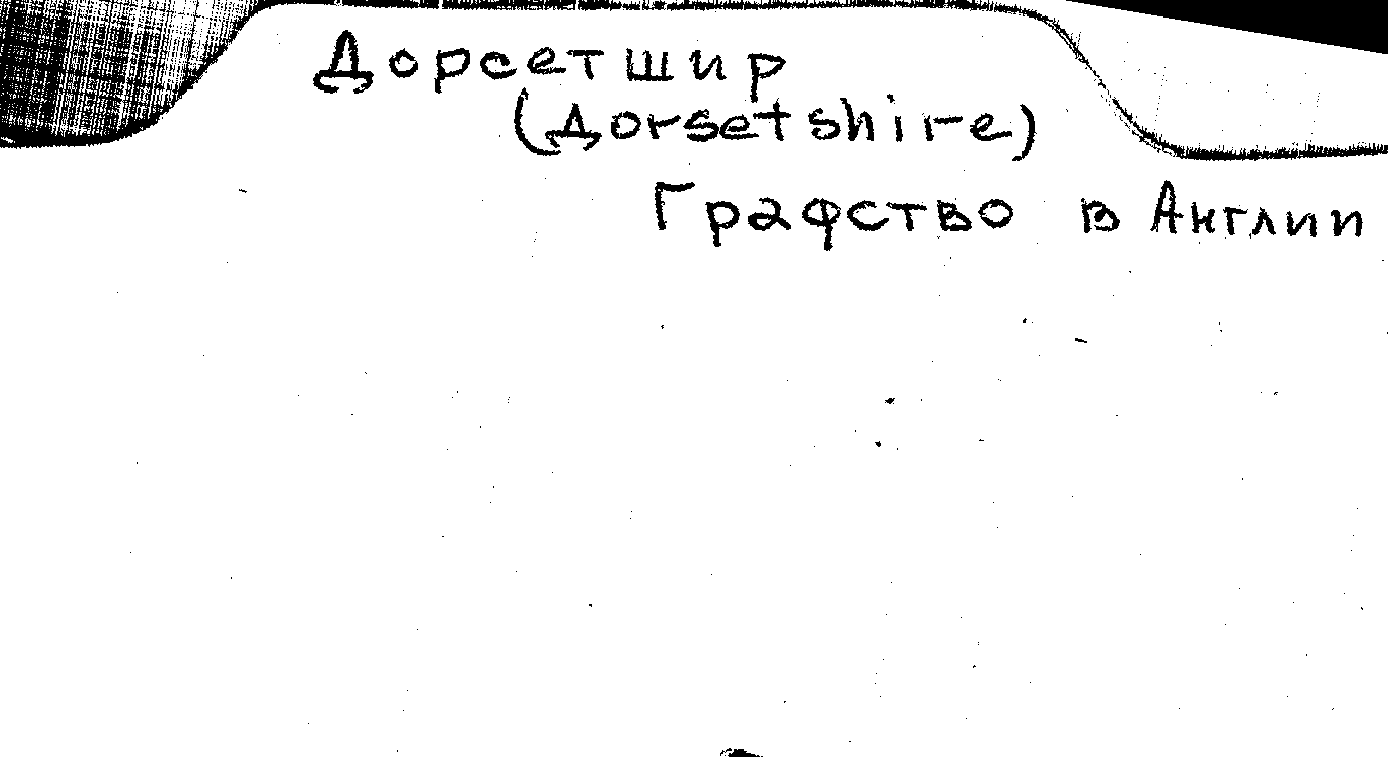 Дорсетшир
(Дorsetshire)
Графство в Англии